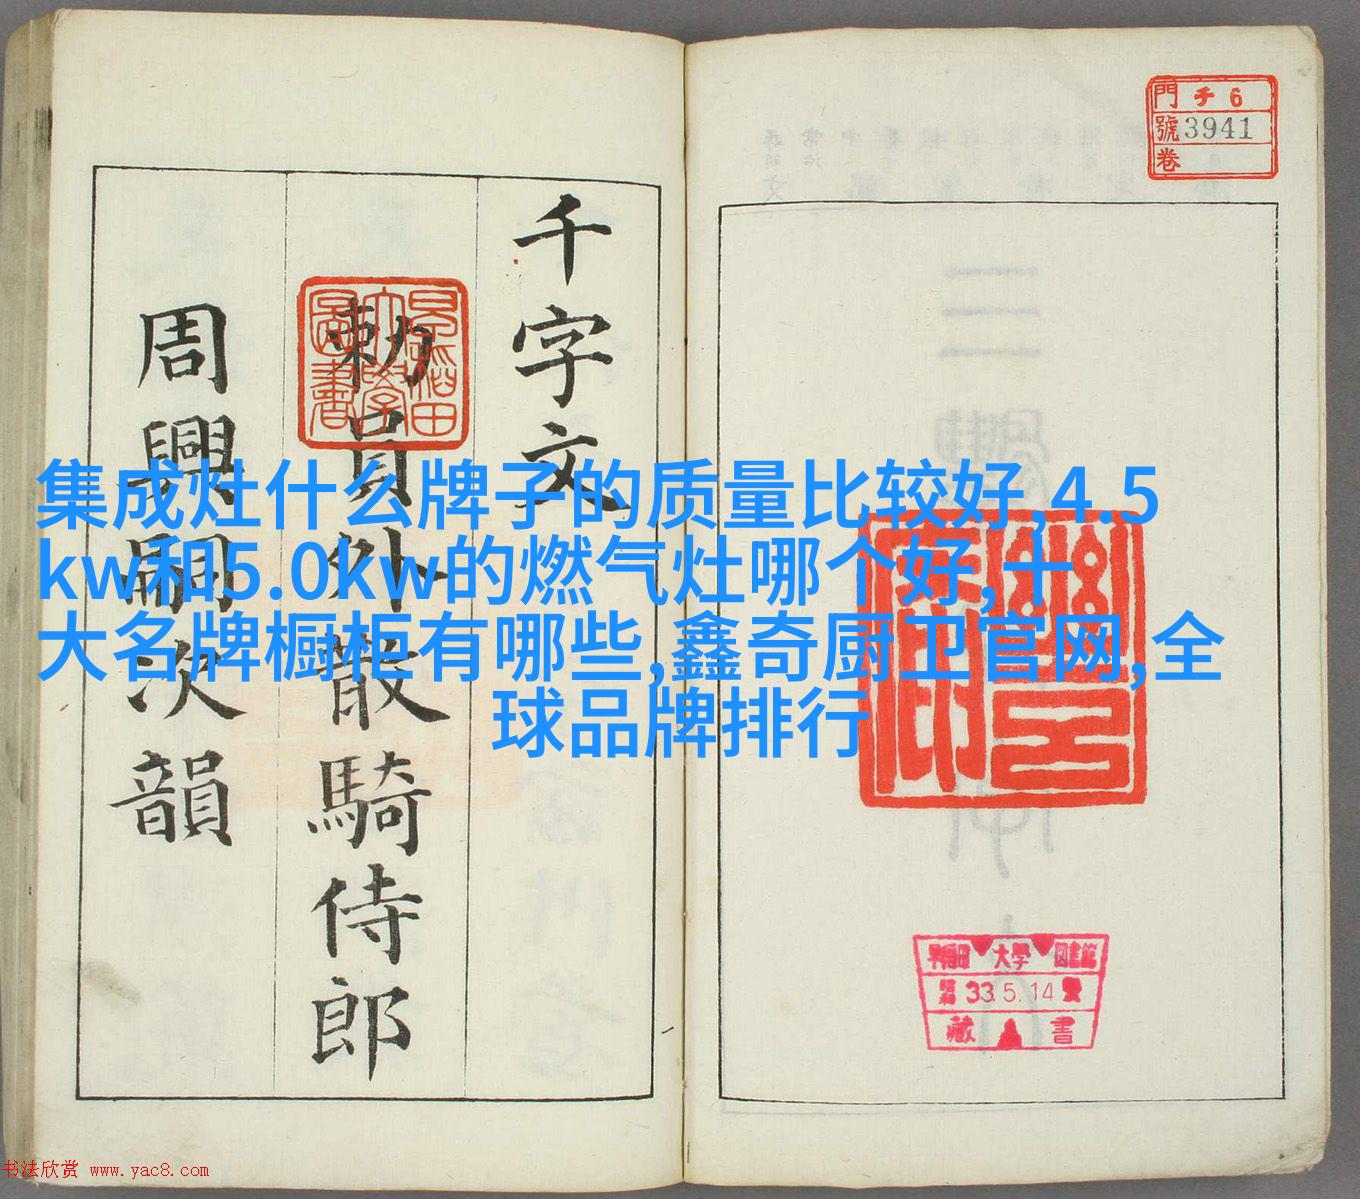 門 チ 6
號 3941
卷
千字文
勅員外散騎侍郎
周興嗣次韻
早稻田大學圖書
集成灶什么牌子的质量比较好,4.5
kw和5.0kw的燃气灶哪个好,十
大名牌橱柜有哪些,鑫奇厨卫官网,全
球品牌排行
早稻田 大學 圖書館
昭和 33.5.14
藏書
书法欣赏 www.yac8.com